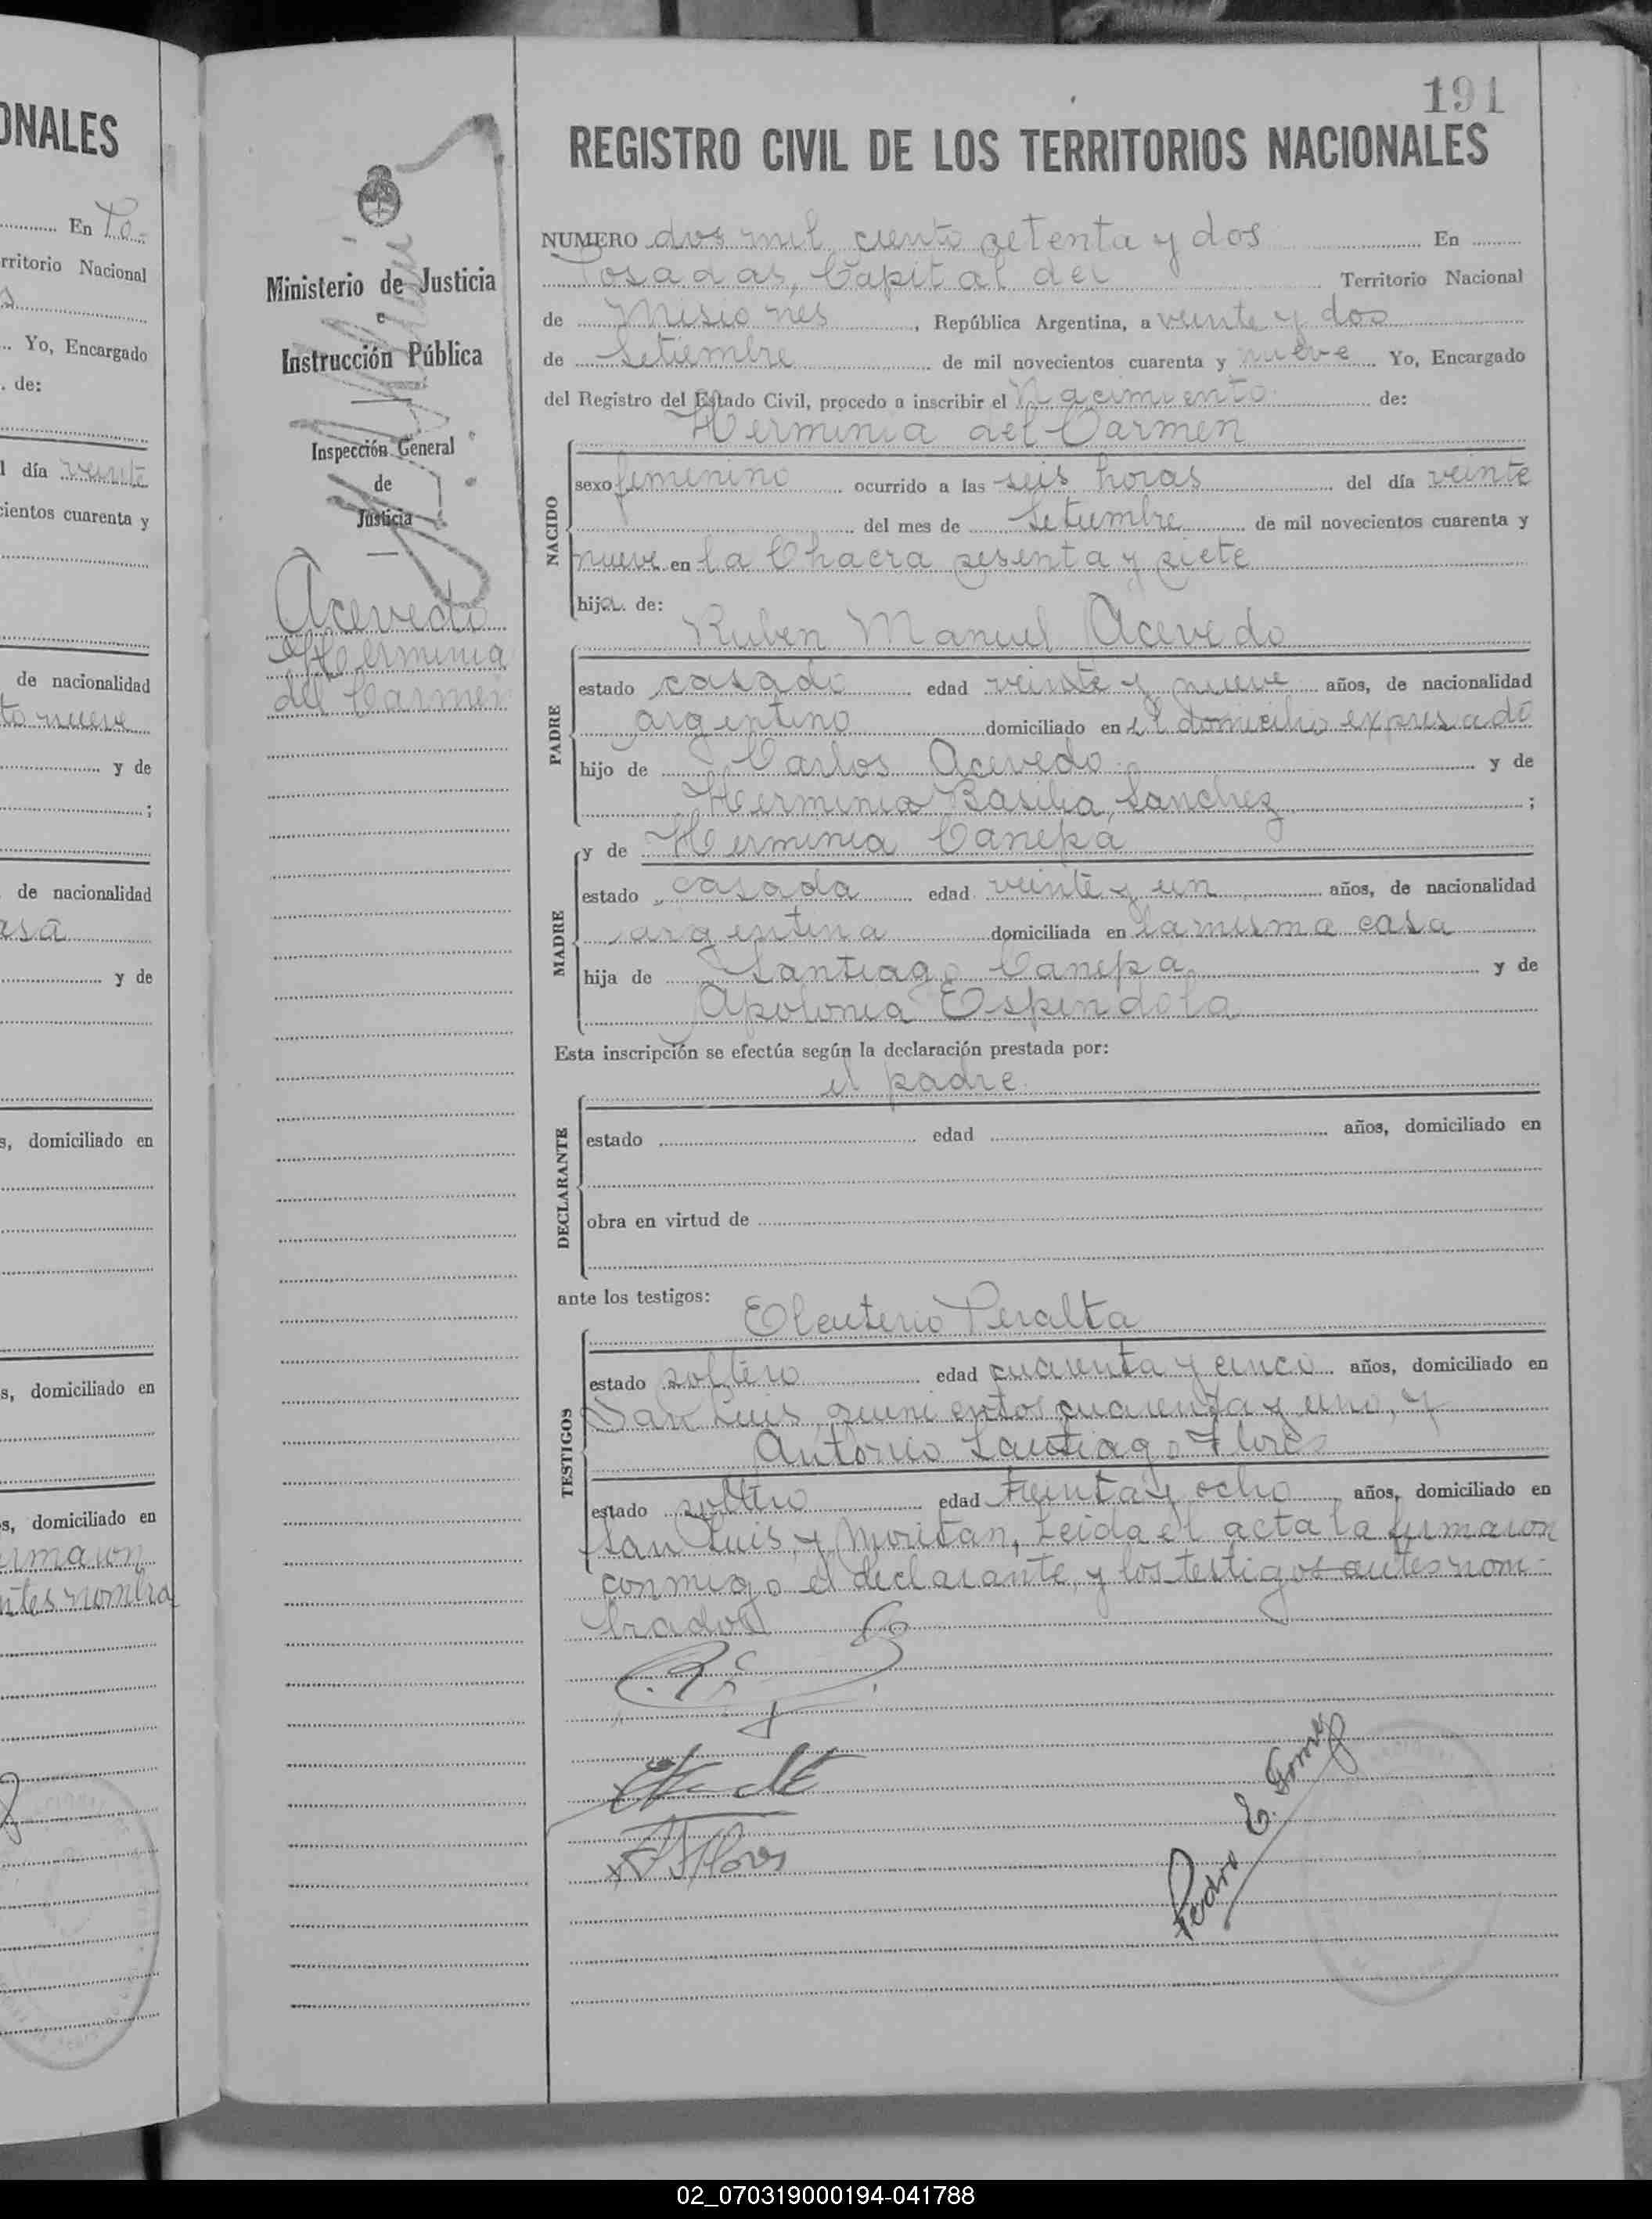 ONALES
En Po-
rritorio Nacional
Yo, Encargado
de:
l día veinte
cientos cuarenta y
de nacionalidad
to nueve
y de
;
de nacionalidad
asa
y de
s, domiciliado en
s, domiciliado en
s, domiciliado en
irmaron
ntes nombra
Ministerio de Justicia
e
Instrucción Pública
Inspección General
de
Justicia
Acevedo
Herminia
del Carmen
191
REGISTRO CIVIL DE LOS TERRITORIOS NACIONALES
NUMERO dos mil ciento setenta y dos En
Posadas, Capital del Territorio Nacional
de Misiones, República Argentina, a veinte y dos
de Setiembre de mil novecientos cuarenta y nueve Yo, Encargado
del Registro del Estado Civil, procedo a inscribir el Nacimiento de:
Herminia del Carmen
NACIDO
sexo femenino ocurrido a las seis horas del día veinte
del mes de Setiembre de mil novecientos cuarenta y
nueve en la Chacra sesenta y siete
hija de:
Ruben Manuel Acevedo
PADRE
estado casado edad veinte y nueve años, de nacionalidad
argentino domiciliado en el domicilio expresado
hijo de Carlos Acevedo y de
Herminia Basilia Sanchez ;
y de Herminia Canepa
MADRE
estado casada edad veinte y un años, de nacionalidad
argentina domiciliada en la misma casa
hija de Santiago Canepa y de
Apolonia Espindola
Esta inscripción se efectúa según la declaración prestada por:
el padre
DECLARANTE
estado edad años, domiciliado en
obra en virtud de
ante los testigos:
Eleuterio Peralta
TESTIGOS
estado soltero edad cuarenta y cinco años, domiciliado en
San Luis quinientos cuarenta y uno, y
Antonio Santiago Flores
estado soltero edad treinta y ocho años, domiciliado en
San Luis y Moritan, Leida el acta la firmaron
conmigo el declarante, y los testigos antes nom-
brados
Flores
Pedro E. Gomez
02_070319000194-041788